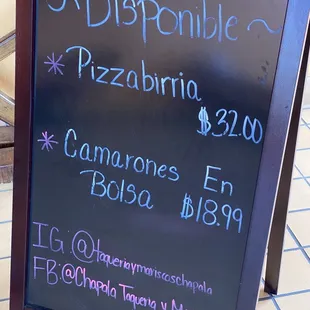 Disponible
* Pizzabirria
$32.00
* Camarones En
Bolsa $18.99
IG: @taqueriaymariscoschapala
FB: @Chapala Taqueria y